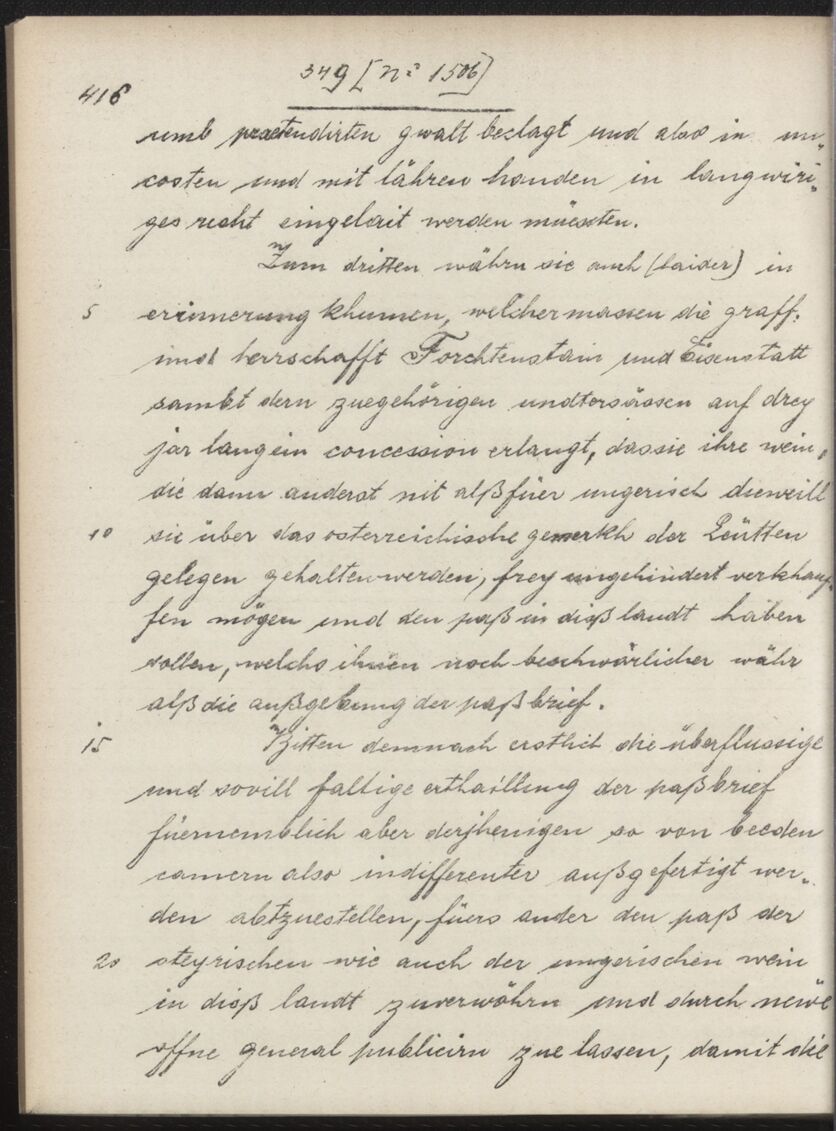 349 [No 1506]
416
umb praetendirten gwalt beclagt und also in un„
costen und mit lähren handen in langwiri„
ges recht eingelait werden müesten.
Zum dritten währn sie auch (laider) in
5 erinnerung khumen, welchermassen die graff-
und herrschafft Forchtenstain und Eisenstatt
sambt dern zuegehörigen undtersässen auf drey
jar lang ein concession erlangt, das sie ihre wein,
die dann anderst nit alß für ungerisch dieweill
10 sie über das osterreichische gemerkh der Leütten
gelegen gehalten werden, frey ungehindert verkhauf„
fen mögen und den paß in diß landt haben
sollen, welchs ihnen noch beschwärlicher währ
alß die außgebung der paßbrief.
15 Bitten demnach erstlich die überflussige
und sovill faltige erthaillung der paßbrief
füernemblich aber derjhenigen so von beeden
camern also indifferenter außgefertigt wer„
den abtzuestellen, füers ander den paß der
20 steyrischen wie auch der ungerischen wein
in diß landt zuverwöhrn und durch newe
offne general publicirn zue lassen, damit die